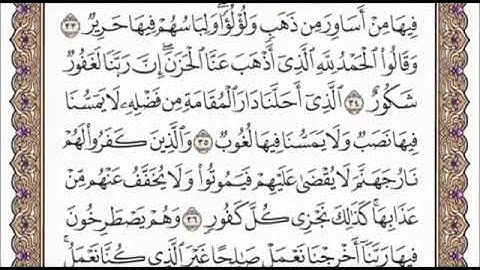 فِيهَا مِنْ أَسَاوِرَ مِن ذَهَبٍ وَلُؤْلُؤًا وَلِبَاسُهُمْ فِيهَا حَرِيرٌ ٣٣
وَقَالُوا۟ ٱلْحَمْدُ لِلَّهِ ٱلَّذِىٓ أَذْهَبَ عَنَّا ٱلْحَزَنَ إِنَّ رَبَّنَا لَغَفُورٌ
شَكُورٌ ٣٤ ٱلَّذِىٓ أَحَلَّنَا دَارَ ٱلْمُقَامَةِ مِن فَضْلِهِۦ لَا يَمَسُّنَا
فِيهَا نَصَبٌ وَلَا يَمَسُّنَا فِيهَا لُغُوبٌ ٣٥ وَٱلَّذِينَ كَفَرُوا۟ لَهُمْ
نَارُ جَهَنَّمَ لَا يُقْضَىٰ عَلَيْهِمْ فَيَمُوتُوا۟ وَلَا يُخَفَّفُ عَنْهُم مِّنْ
عَذَابِهَا كَذَٰلِكَ نَجْزِى كُلَّ كَفُورٍ ٣٦ وَهُمْ يَصْطَرِخُونَ
فِيهَا رَبَّنَآ أَخْرِجْنَا نَعْمَلْ صَٰلِحًا غَيْرَ ٱلَّذِى كُنَّا نَعْمَلُ